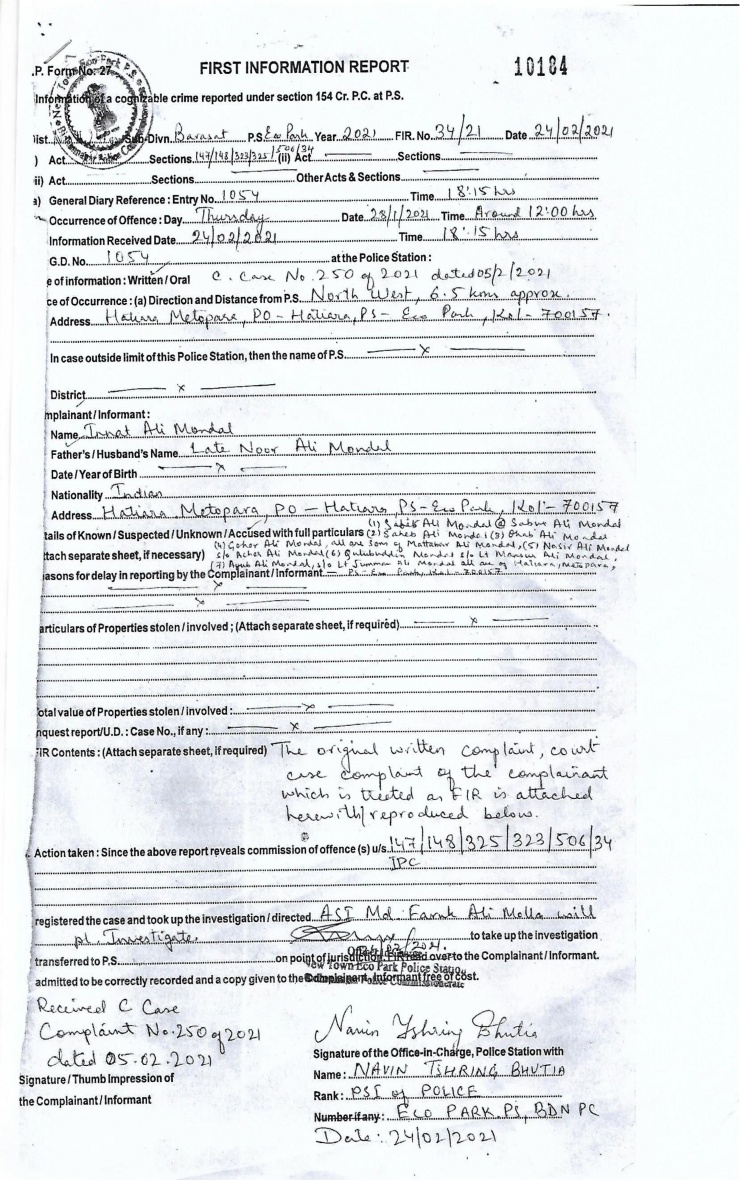 .P. Form No: 27
FIRST INFORMATION REPORT
10184
Information of a cognizable crime reported under section 154 Cr. P.C. at P.S.
ist. Sub-Divn. Barasat P.S. Eco Park Year 2021 FIR. No. 34/21 Date 24/02/2021
) Act Sections 147/148/323/325/506/34 (ii) Act Sections
ii) Act Sections Other Acts & Sections
a) General Diary Reference : Entry No. 1054 Time 18:15 hrs
Occurrence of Offence : Day Thursday Date 28/1/2021 Time Around 12:00 hrs
Information Received Date 24/02/2021 Time 18:15 hrs
G.D. No. 1054 at the Police Station :
e of information : Written / Oral C. Case No. 250 of 2021 dated 05/2/2021
ce of Occurrence : (a) Direction and Distance from P.S. North West, 6.5 kms approx.
Address Hatiara Metopara, PO - Hatiara, PS - Eco Park, Kol - 700157.
In case outside limit of this Police Station, then the name of P.S. x
District x
mplainant / Informant :
Name Innat Ali Mondal
Father's / Husband's Name Late Noor Ali Mondal
Date / Year of Birth x
Nationality Indian
Address Hatiara Metopara, PO - Hatiara PS - Eco Park, Kol - 700157
tails of Known / Suspected / Unknown / Accused with full particulars (1) Sabib Ali Mondal @ Sabur Ali Mondal
(2) Saheb Ali Mondal (3) Ali Mondal
(4) Gohor Ali Mondal, all are sons of Mattabar Ali Mondal, (5) Nasir Ali Mondal
ttach separate sheet, if necessary) s/o Ali Mondal (6) Mondal s/o Lt Mansur Ali Mondal,
(7) Ayub Ali Mondal, s/o Lt Jumman Ali Mondal all are of Hatiara, Metopara,
asons for delay in reporting by the Complainant / Informant PS - Eco Park, Kol - 700157
x
x
articulars of Properties stolen / involved ; (Attach separate sheet, if required) x
otal value of Properties stolen / involved : x
nquest report/U.D. : Case No., if any : x
FIR Contents : (Attach separate sheet, if required) The original written complaint, court
case complaint of the complainant
which is treated as FIR is attached
herewith/reproduced below.
. Action taken : Since the above report reveals commission of offence (s) u/s 147/148/325/323/506/34
IPC
registered the case and took up the investigation / directed ASI Md. Faruk Ali Molla will
pl. Investigate. to take up the investigation
transferred to P.S. on point of jurisdiction. FIR read over to the Complainant / Informant.
New Town Eco Park Police Station
admitted to be correctly recorded and a copy given to the Complainant, Informant free of cost.
Received C Case
Complaint No. 250 of 2021
dated 05.02.2021
Signature / Thumb Impression of
the Complainant / Informant
Navin Tshring Bhutia
Signature of the Office-in-Charge, Police Station with
Name : NAVIN TSHRING BHUTIA
Rank : PSI of POLICE
Number if any : ECO PARK PS, BDN PC
Date : 24/02/2021